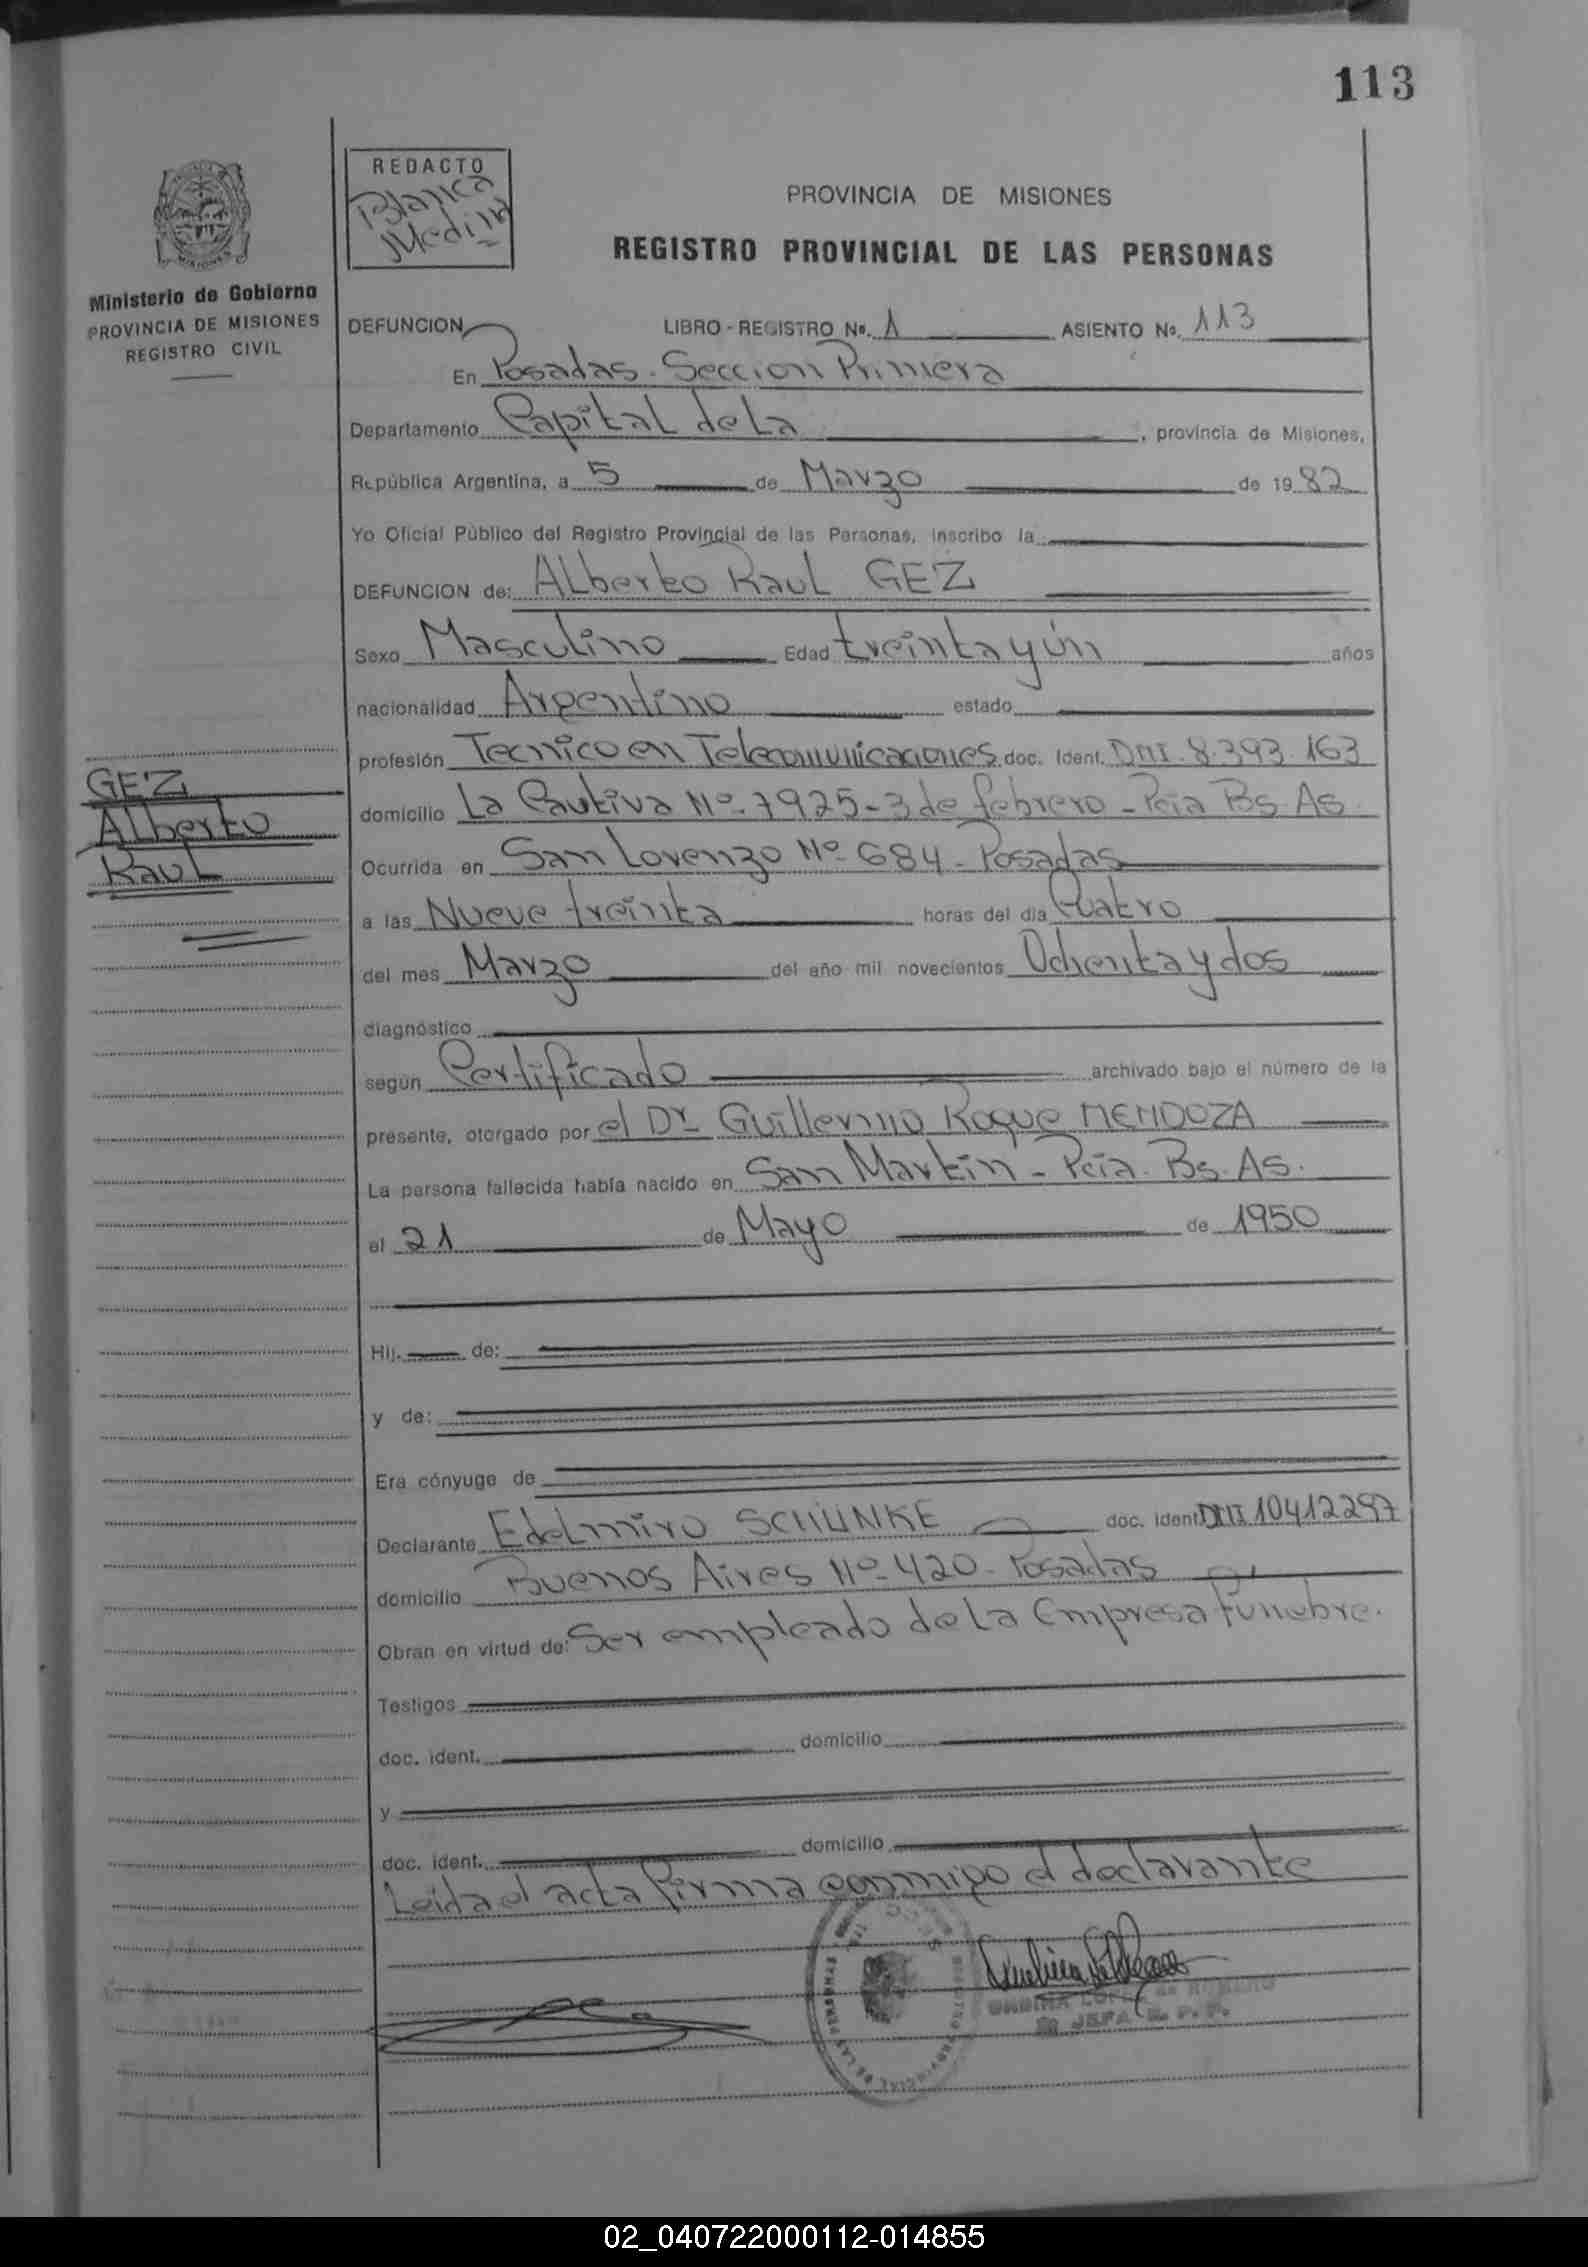 113
REDACTO
Blanca
Medina
PROVINCIA DE MISIONES
REGISTRO PROVINCIAL DE LAS PERSONAS
MISIONES
Ministerio de Gobierno
PROVINCIA DE MISIONES
REGISTRO CIVIL
DEFUNCION LIBRO - REGISTRO No. 1 ASIENTO No. 113
En Posadas. Seccion Primera
Departamento Capital de La, provincia de Misiones,
República Argentina, a 5 de Marzo de 1982
Yo Oficial Público del Registro Provincial de las Personas, inscribo la
DEFUNCION de: ALberto Raul GEZ
Sexo Masculino Edad treinta y ún años
nacionalidad Argentino estado
profesión Tecnico en Telecomunicaciones doc. Ident. DNI. 8.393.163
GEZ
ALberto
Raul
domicilio La Cautiva Nº 7925-3 de febrero - Pcia Bs. As.
Ocurrida en San Lorenzo Nº 684 - Posadas
a las Nueve treinta horas del día Cuatro
del mes Marzo del año mil novecientos Ochenta y dos
diagnóstico
según Certificado archivado bajo el número de la
presente, otorgado por el Dr. Guillermo Roque MENDOZA
La persona fallecida había nacido en San Martin - Pcia. Bs. As.
el 21 de Mayo de 1950
Hij. de:
y de:
Era cónyuge de
Declarante Edelmiro SCHUNKE doc. ident DNI 10412297
domicilio Buenos Aires Nº 420 - Posadas
Obran en virtud de: Ser empleado de La Empresa fúnebre.
Testigos
doc. ident. domicilio
y
doc. ident. domicilio
Leida el acta firma conmigo el declarante
JEFA R. P. P.
02_040722000112-014855